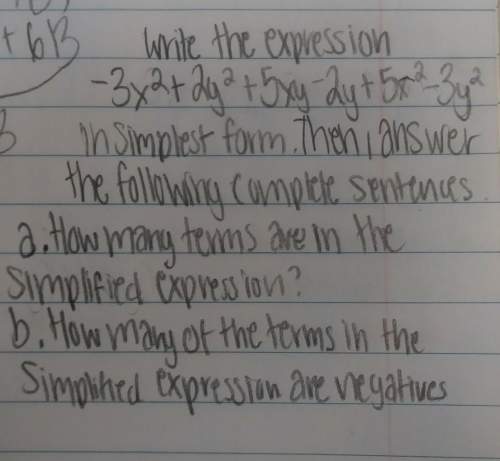 + 6B
Write the expression
-3x²+2y²+5xy-2y+5x²-3y²
in simplest form. Then, answer
the following complete sentences.
a. How many terms are in the
simplified expression?
b. How many of the terms in the
simplified expression are negatives